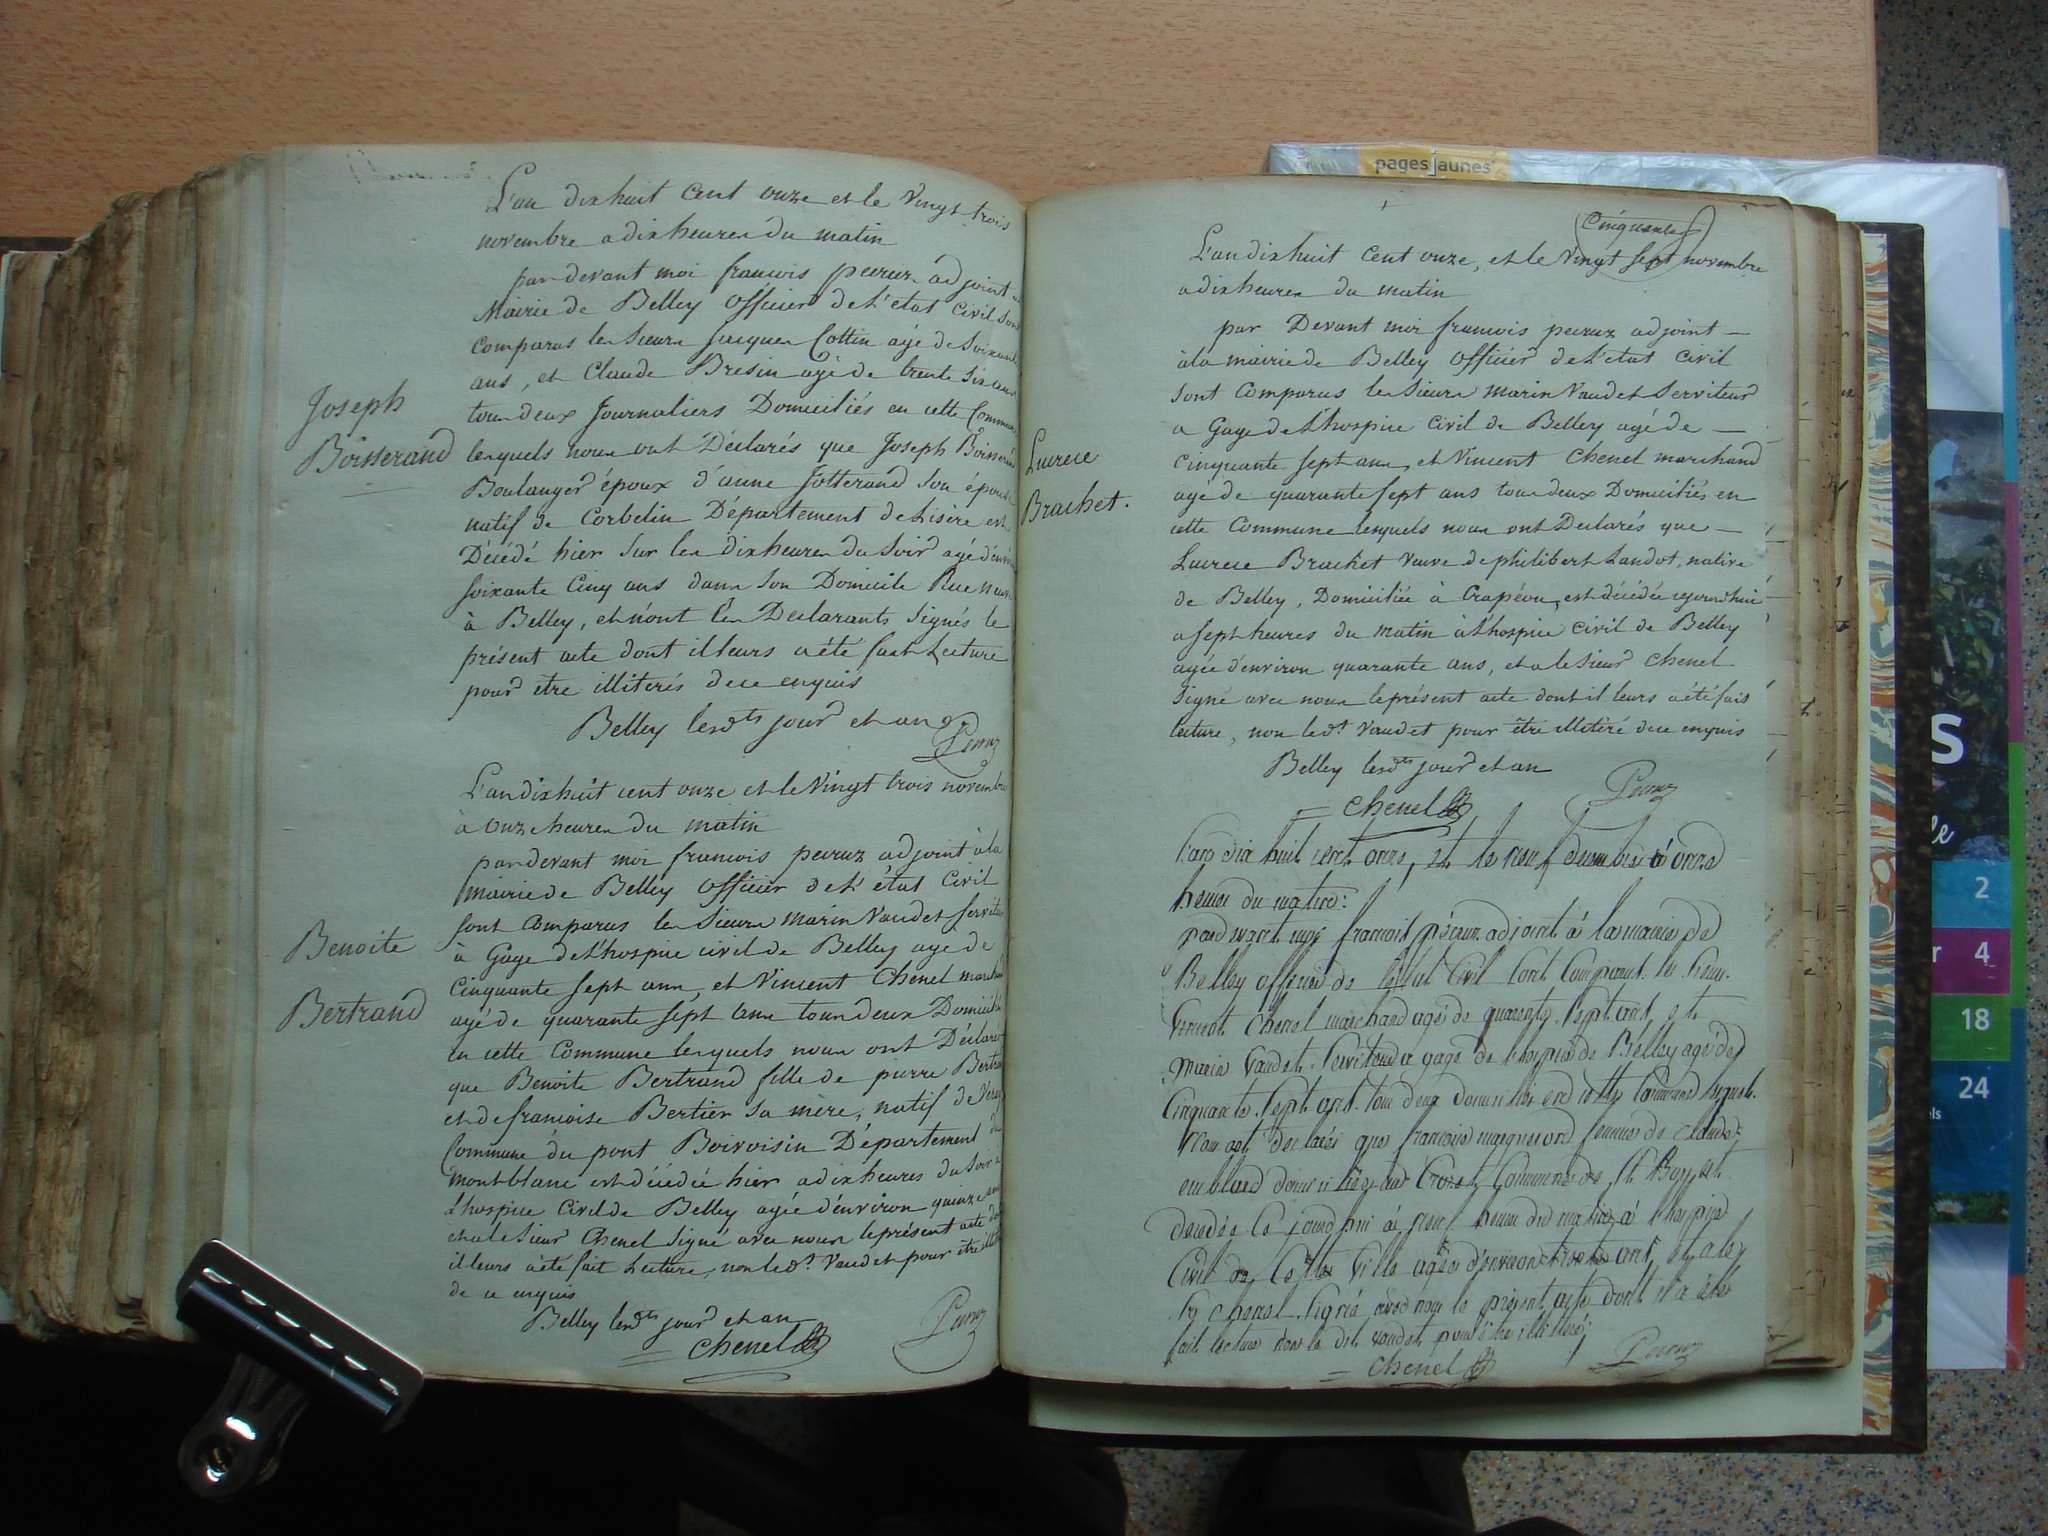 L'an dix huit cent onze et le Vingt trois
novembre a dix heures du matin
pardevant moi francois peiruz adjoint
Mairie de Belley officier de l'etat Civil sont
comparus les Sieurs Jacques Cottin agé de Soixante
ans, et Claude Bresin agé de trente six ans
tous deux Journaliers Domiciliés en cette Commune
Joseph
Boisserand
lesquels nous ont Déclarés que Joseph Boisserand
Boulanger époux d'anne Jotterand Son épouse
natif de Corbelin Département de Lisère est
Décédé hier Sur les dix heures du Soir agé d'environ
soixante Cinq ans dans Son Domicile Rue neuve
à Belley, et n'ont les Declarants Signés le
présent acte dont il leurs a été fait Lecture
pour être illiterés de ce enquis
Belley lesdts jour et an
Peiruz
L'an dix huit cent onze et le Vingt trois novembre
à onze heures du matin
pardevant moi francois peiruz adjoint à la
mairie de Belley officier de l'état Civil
sont comparus les Sieurs marin Vaudet Serviteur
Benoite
Bertrand
à Gage de L'hospice civil de Belley agé de
Cinquante sept ans, et Vincent Chenel marchand
agé de quarante sept ans tous deux Domiciliés
en cette Commune lesquels nous ont Déclarés
que Benoite Bertrand fille de pierre Bertrand
et de francoise Bertier sa mère, natif de
Commune du pont Boivoisin Département du
montblanc est décédée hier a dix heures du Soir à
L'hospice Civil de Belley agée d'environ quinze ans
et a le Sieur Chenel Signé avec nous le présent acte dont
il leurs a été fait Lecture, non led.t Vaudet pour être
de ce enquis
Belley lesdts jour et an
Chenel
Peiruz
Cinquante
L'an dix huit Cent onze, et le Vingt sept novembre
a dix heures du matin
par Devant moi francois peiruz adjoint
à la mairie de Belley officier de l'etat Civil
sont Comparus les Sieurs marin Vaudet Serviteur
a Gage de L'hospice Civil de Belley agé de
Lucrece
Brachet.
cinquante sept ans, et Vincent Chenel marchand
agé de quarante sept ans tous deux Domiciliés en
cette Commune lesquels nous ont Declarés que
Lucrece Brachet Veuve de philibert Landot, native
de Belley, Domiciliée à Crapéou, est décédée ajourdhui
a sept heures du matin à L'hospice Civil de Belley
agée d'environ quarante ans, et a le Sieur Chenel
Signé avec nous le présent acte dont il leurs a été fait
lecture, non led.t Vaudet pour être illitéré de ce enquis
Belley lesdts jour et an
Chenel
Peiruz
L'an dix huit cent onze, et le neuf decembre à onze
heures du matin:
pardevant moi francois peiruz adjoint à la mairie de
Belley officier de l'etat Civil sont Comparus les sieurs
Vincent Chenel marchand agé de quarante sept ans, et
marin Vaudet serviteur a gage de l'hospice de Belley agé de
Cinquante sept ans tous deux domiciliés en cette Commune lesquels
nous ont declaré que francoise femme de Claude
domiciliée au Commune de St est
decedée ce jourd'hui à neuf heures du matin à l'hospice
Civil de Cette Ville agée d'environ trente ans, et a le
Sr Chenel signé avec nous le présent acte dont il a été
fait lecture non le dit Vaudet pour être illiteré
Chenel
Peiruz
pages jaunes
2
4
18
24